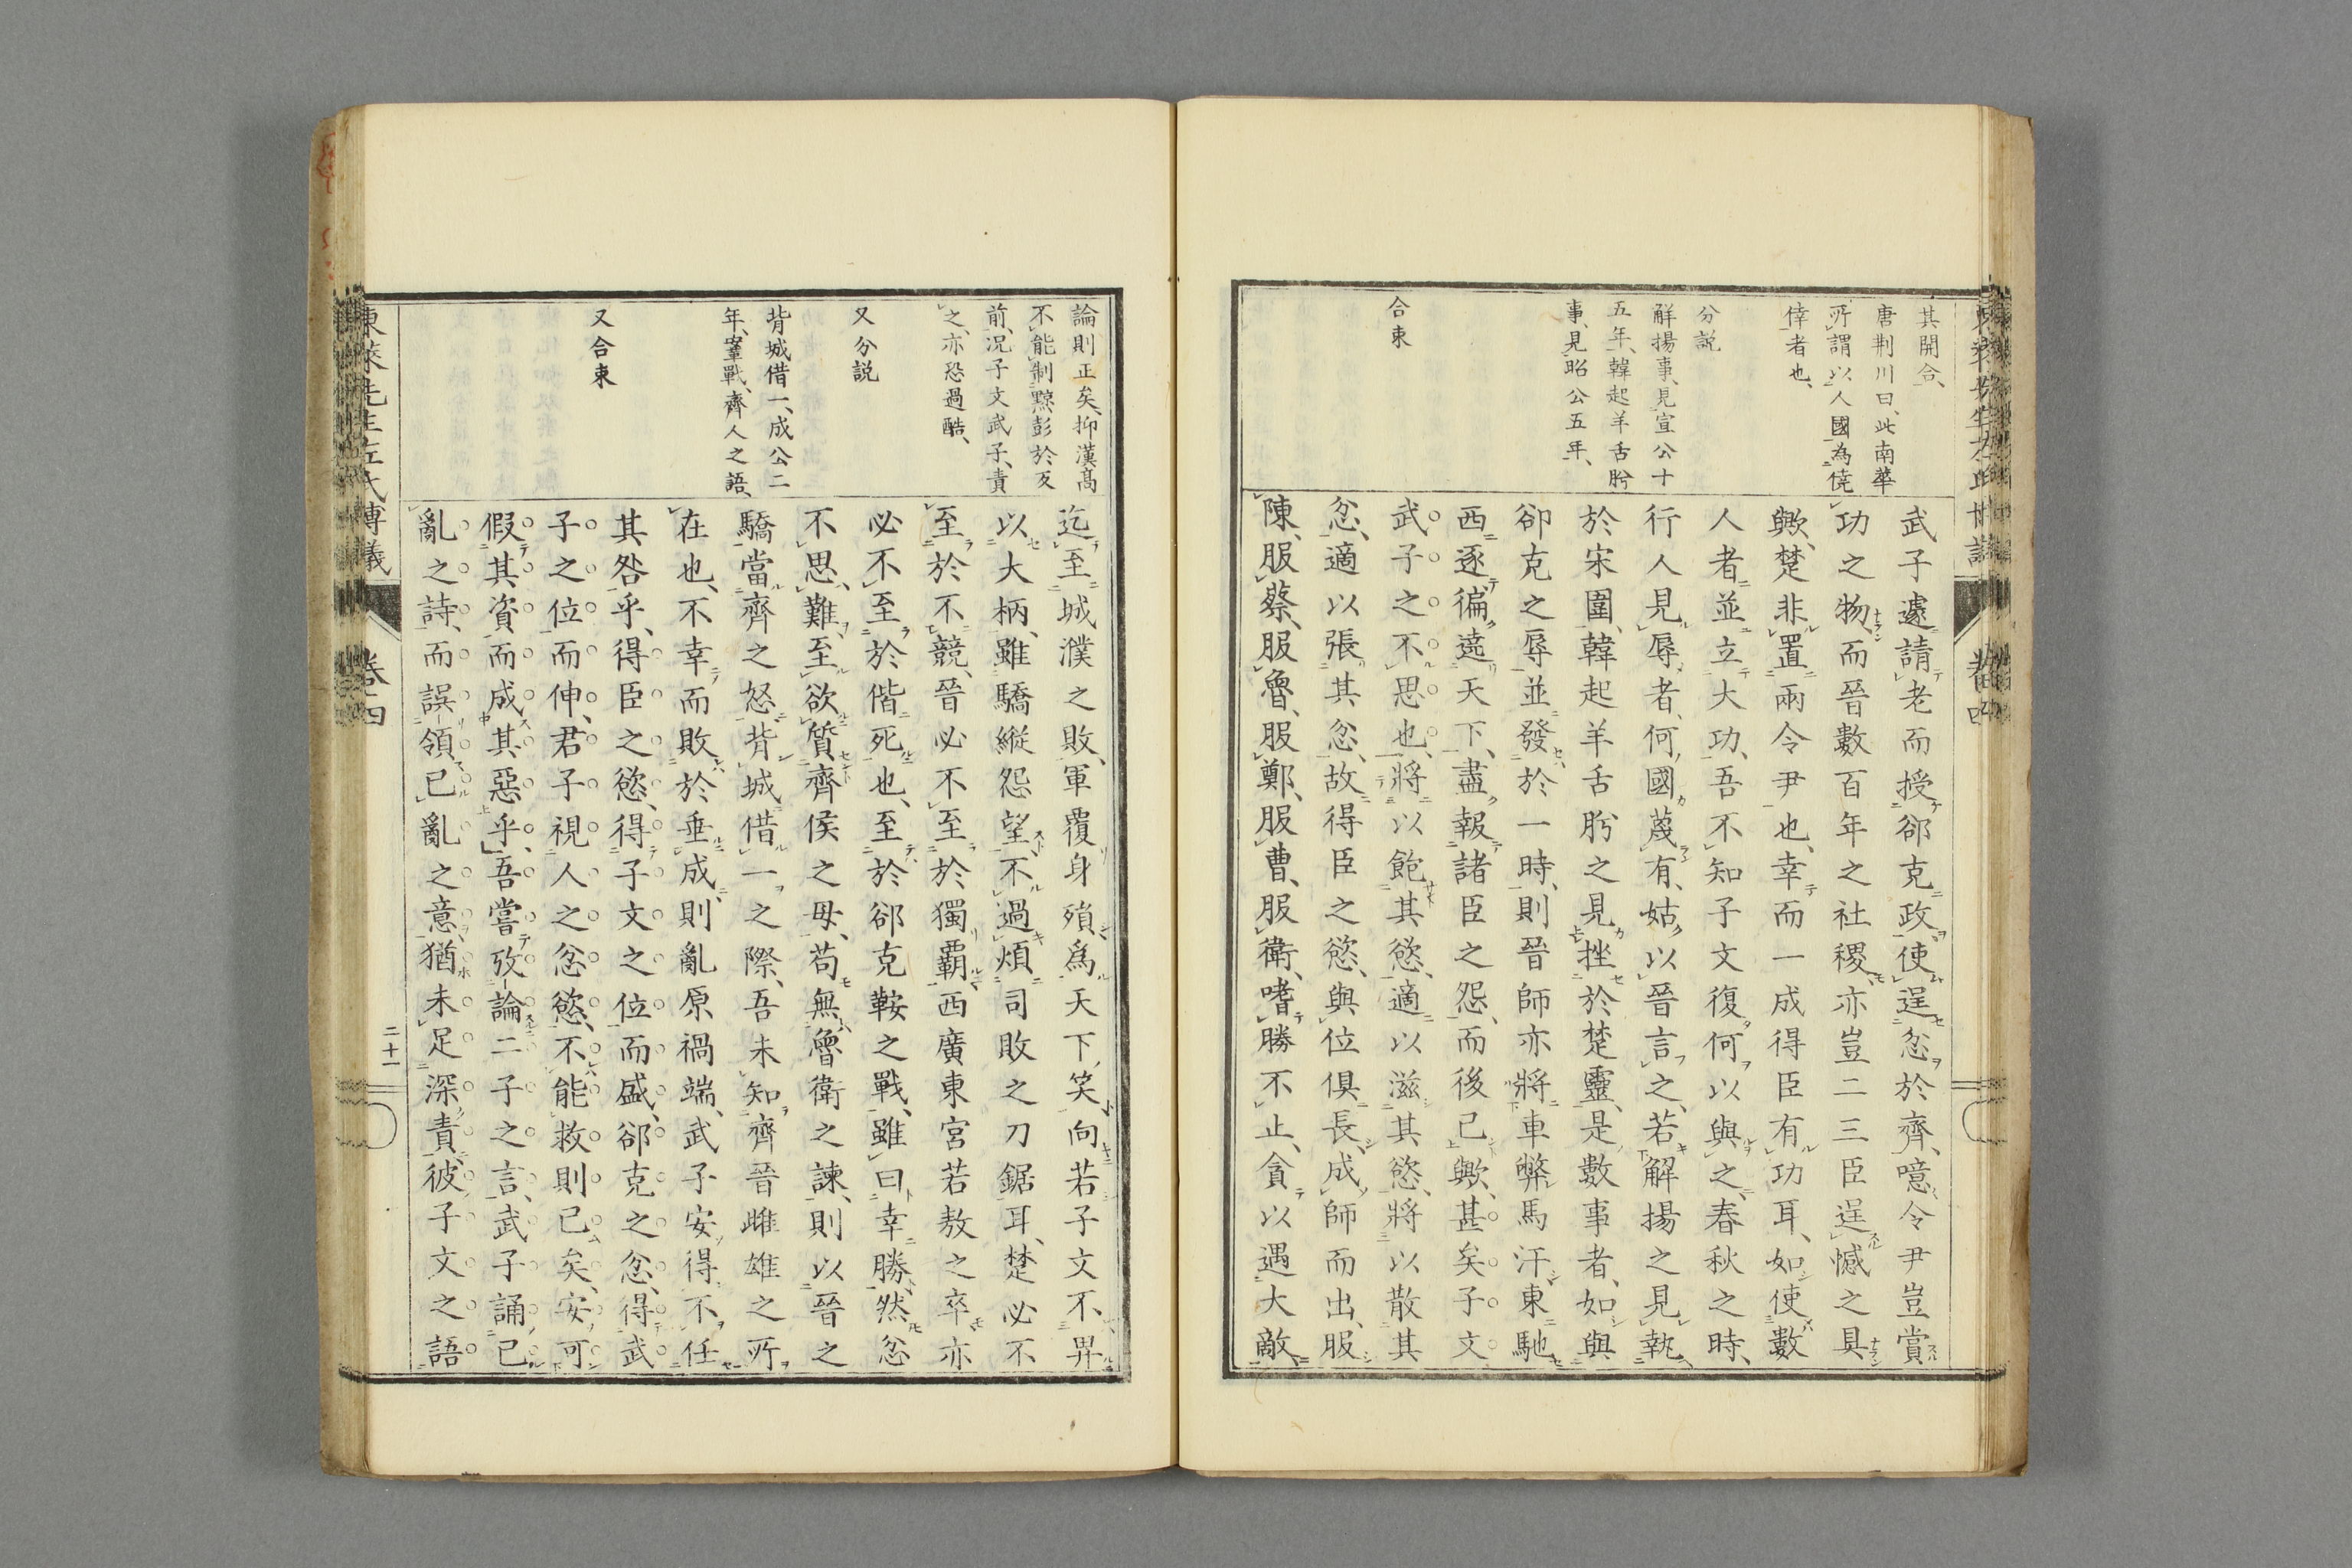 其開合、
唐荆川曰、此南華
所謂以人國為僥
倖者也、
分説
解揚事、見宣公十
五年、韓起羊舌肸
事、見昭公五年、
合束
武子遽請老而授郤克政、使逞忿於齊、噫令尹豈賞
功之物、而晉數百年之社稷、亦豈二三臣逞憾之具
歟、楚非置兩令尹也、幸而一成得臣有功耳、如使數
人者並立大功、吾不知子文復何以與之、春秋之時、
行人見辱者、何國蔑有、姑以晉言之、若解揚之見執
於宋圍、韓起羊舌肸之見挫於楚靈、是數事者、如與
郤克之辱並發於一時、則晉師亦將車弊馬汗、東馳
西逐、徧遶天下、盡報諸臣之怨、而後已歟、甚矣子文
武子之不思也、將以飽其慾、適以滋其慾、將以散其
忿、適以張其忿、故得臣之慾、與位俱長、成師而出、服
陳、服蔡、服魯、服鄭、服曹、服衛、嗜勝不止、貪以遇大敵、
論則正矣、抑漢高
不能制黥彭於反
前、况子文武子、責
之、亦恐過酷、
又分説
背城借一、成公二
年、鞌戰、齊人之語、
又合束
迄至城濮之敗、軍覆身殞、爲天下笑、向若子文不畀
以大柄、雖驕縱怨望、不過煩司敗之刀鋸耳、楚必不
至於不競、晉必不至於獨霸、西廣東宮若敖之卒亦
必不至於偕死也、至於郤克鞍之戰、雖曰幸勝、然忿
不思難、至欲質齊侯之毋、苟無魯衛之諫、則以晉之
驕當齊之怒、背城借一之際、吾未知齊晉雌雄之所
在也、不幸而敗於垂成、則亂原禍端、武子安得不任
其咎乎、得臣之慾、得子文之位而盛、郤克之忿、得武
子之位而伸、君子視人之忿慾、不能救則已矣、安可
假其資而成其惡乎、吾嘗攷論二子之言、武子誦已
亂之詩、而誤領已亂之意、猶未足深責、彼子文之語
東萊先生左氏博議
卷四
二十一